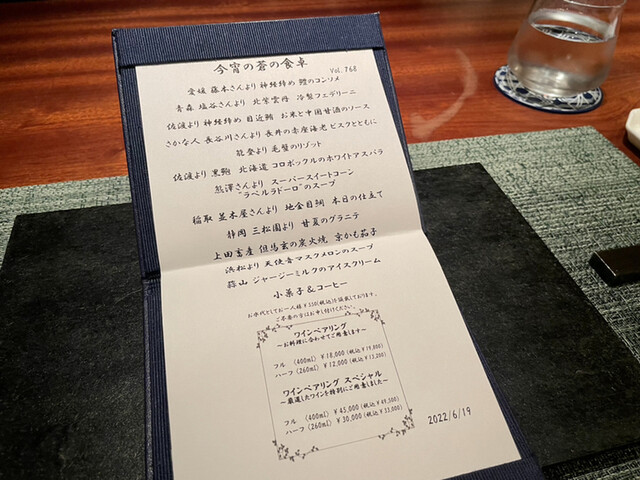 今宵の蒼の食卓
Vol.768
愛媛 藤本さんより 神経締め 鱧のコンソメ
青森 塩谷さんより 北紫雲丹 冷製フェデリーニ
佐渡より 神経締め 目近鮪 お米と中国甘酒のソース
さかな人 長谷川さんより 長井の赤座海老 ビスクとともに
能登より 毛蟹のリゾット
佐渡より 黒鮑 北海道 コロボックルのホワイトアスパラ
熊澤さんより スーパースイートコーン
"ラペルラドーロ"のスープ
稲取 並木屋さんより 地金目鯛 本日の仕立て
静岡 三松園より 甘夏のグラニテ
上田畜産 但馬玄の炭火焼 京かも茄子
浜松より 天使音マスクメロンのスープ
蒜山 ジャージーミルクのアイスクリーム
小菓子&コーヒー
お水代としてお一人様¥550(税込)を頂戴しております。
ご不要の方はお申し付けください。
ワインペアリング
~お料理に合わせてご用意します~
フル (400ml) ¥18,000(税込¥19,800)
ハーフ(260ml) ¥12,000(税込¥13,200)
ワインペアリング スペシャル
~厳選したワインを特別にご用意しました~
フル (400ml) ¥45,000(税込¥49,500)
ハーフ(260ml) ¥30,000(税込¥33,000)
2022/6/19